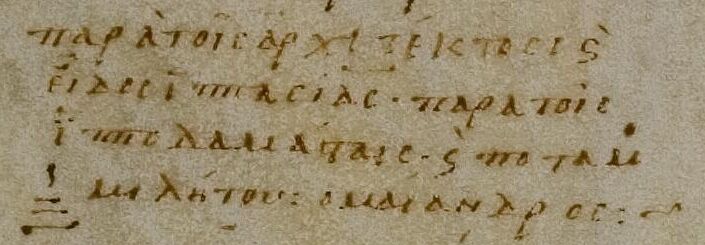 παρὰτοῖς ἀρχιτέκτοσι ϛ̀
εἶδος ἱππασίας · παρατοῖς
ἱπποδαμάσταις · ϛ̀ ποταμ
μιλήτου : ὁ μαίανδρος : ~